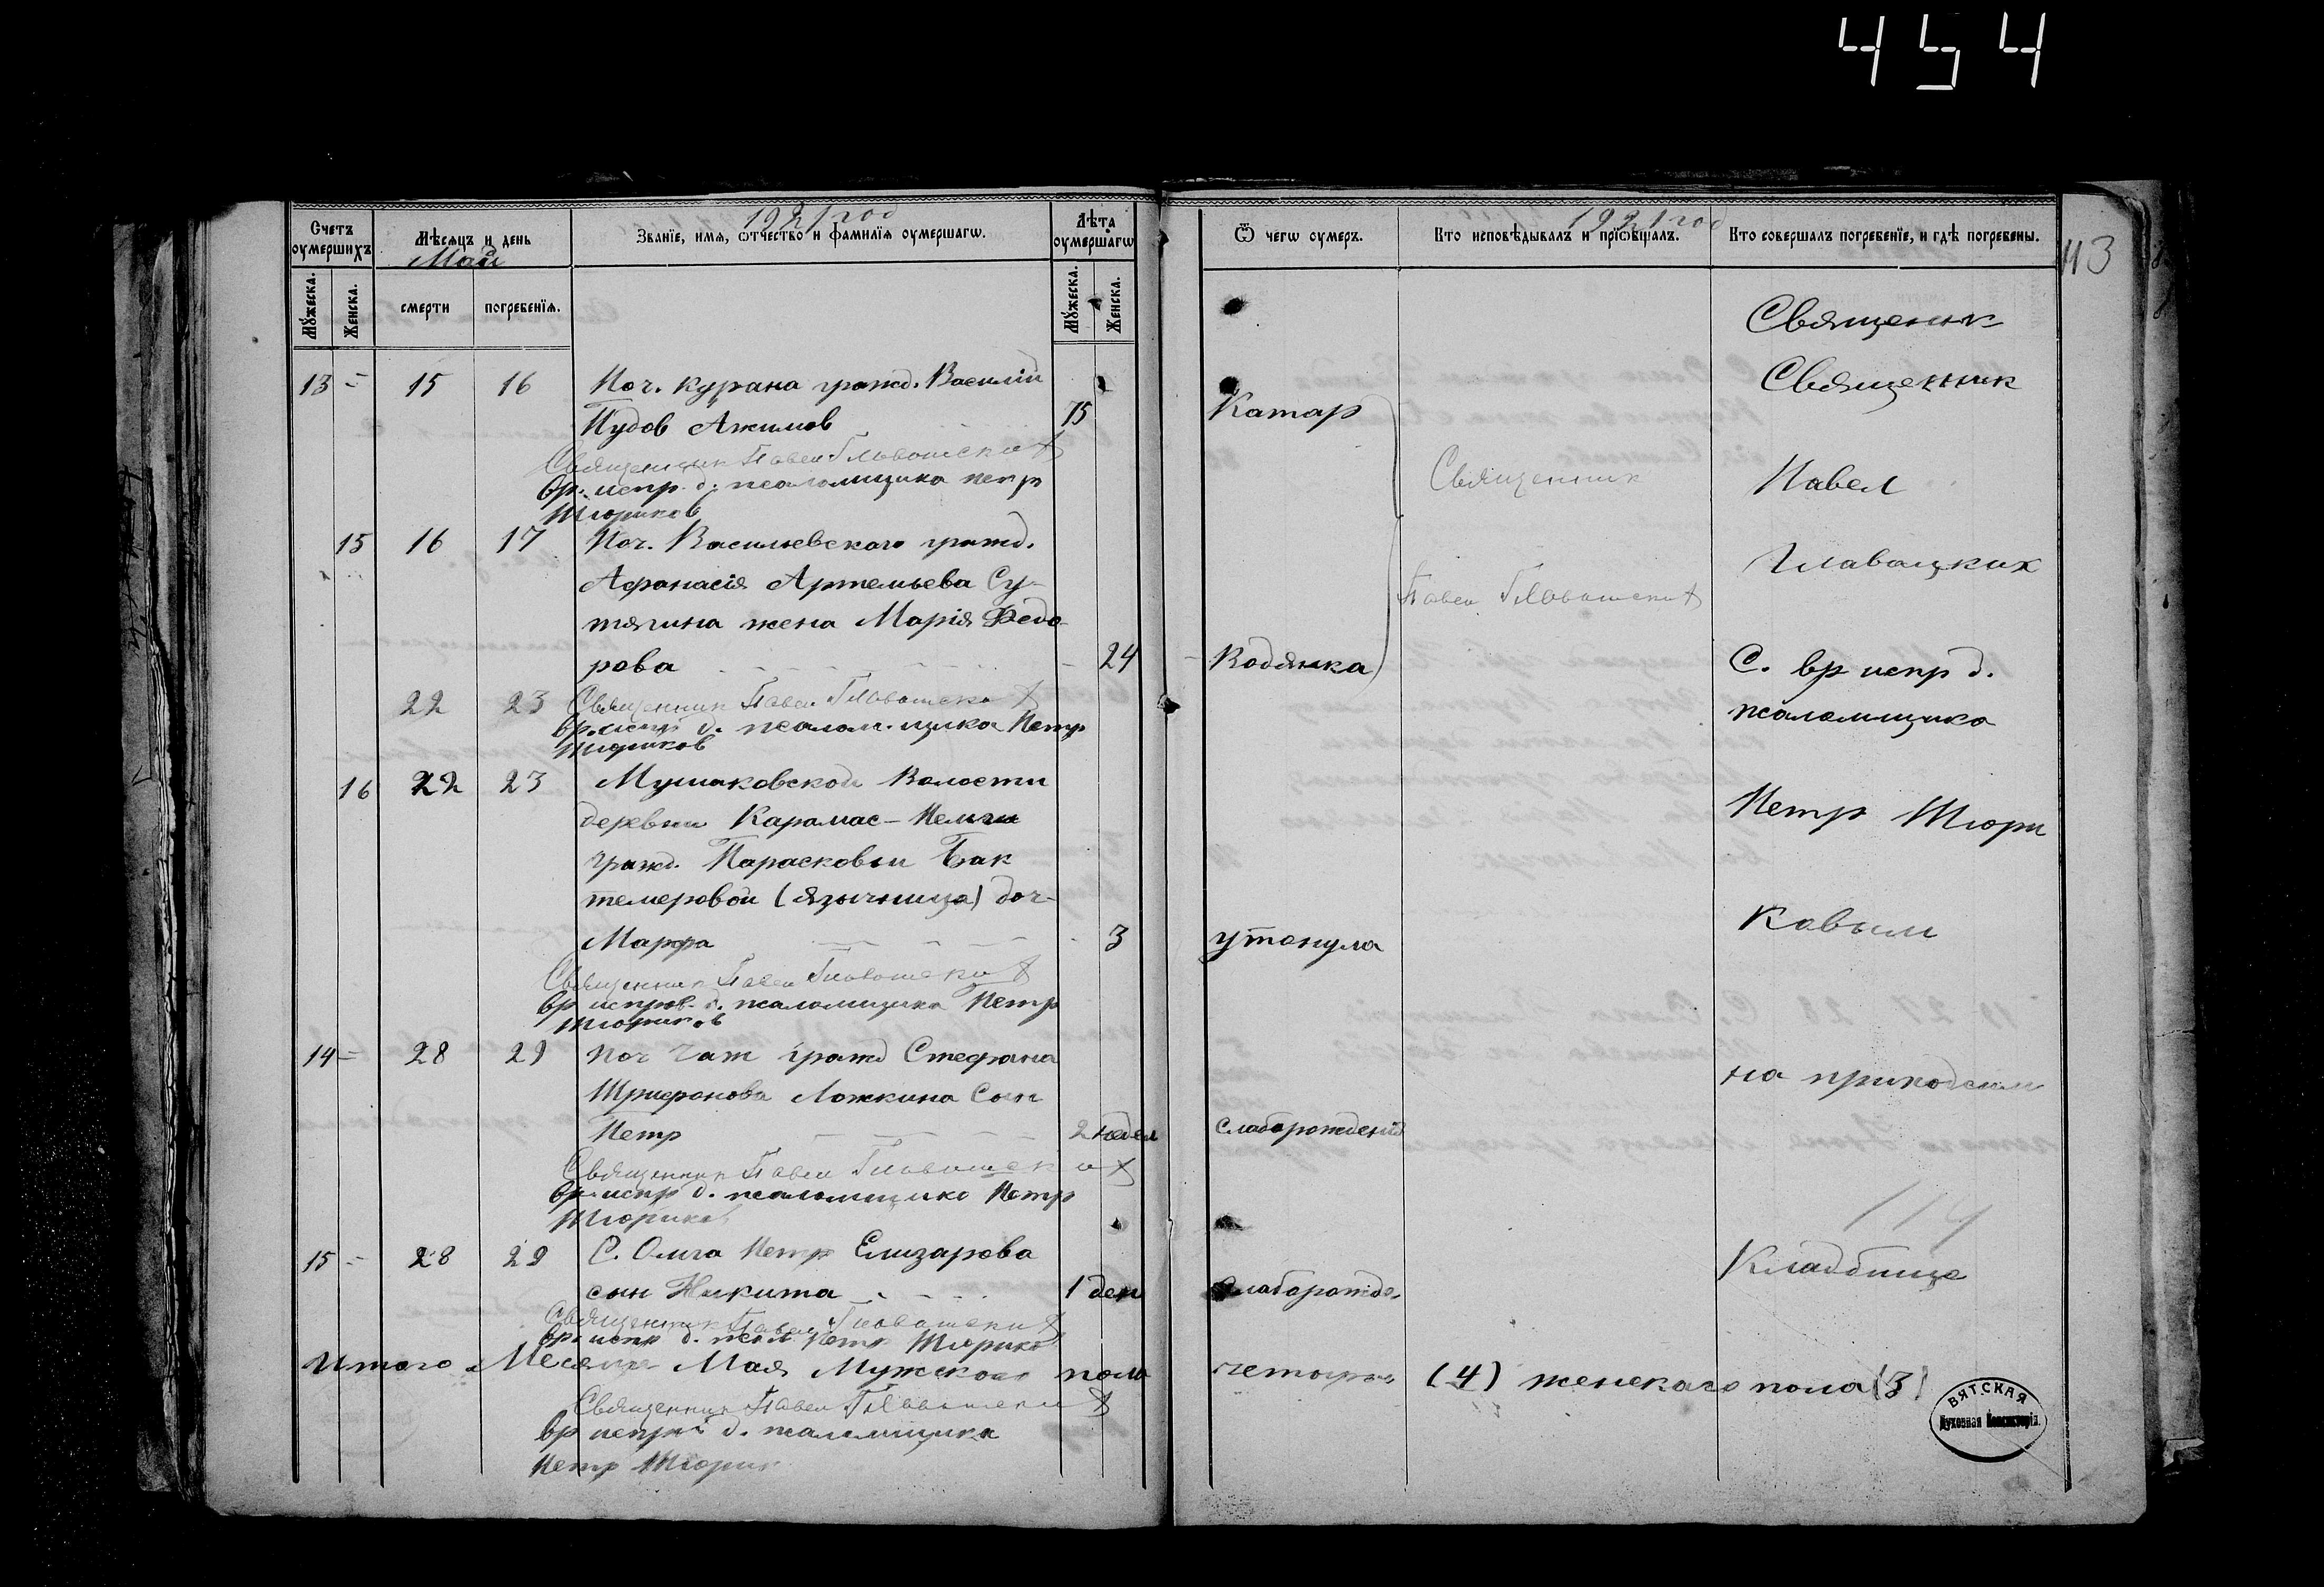 454
1921 год
Счетъ оумершихъ
Мѣсяцъ и день
Май
Званїе, имя, ѿчество и фамилїя оумершагѡ.
Лѣта оумершагѡ
Мꙋжеска.
Женска.
смерти
погребенїя.
Мꙋжеска.
Женска.
13 = 15 16 Поч. Курана гражд. Василий
Пудов Акимов 75
Священник Павел Главатских
вр. испр. д. псаломщика Петр
Тюриков
15 16 17 Поч. Васильевского гражд.
Афанасія Артемьева Су-
тягина жена Марія Федо-
рова 24
22 23 Священник Павел Главатских
вр. испр д. псаломщика Петр
Тюриков
16 22 23 Мушаковской Волости
деревни Карамас-Пельги
гражд. Парасковьи Бак
темеровой (язычница) доч-
Марфа 3
Священник Павел Главатских
вр испров. д. псаломщика Петр
Тюриков
14 = 28 29 поч гражд Стефана
Ложкина Сын
Петр 2 недел
Священник Павел Главатских
вр испр д. псаломщика Петр
Тюриков
15 = 28 29 Петр Елизарова
сын Никита 1 ден
Священник Павел Главатских
вр испр д. псал. Петр Тюриков
Итого Месяце Мая Мужского пола
Священник Павел Главатских
вр испр д. псаломщика
Петр Тюрик
1921 год
Ѿ чегѡ оумеръ.
Кто исповѣдывалъ и прїѡбщалъ.
Кто совершалъ погребенїе, и гдѣ погребены.
113
Священик
Священник
Катар
Священник
Павел
Главацких
Павел Главатских
Водянка
С. вр испр д.
псаломщика
Петр Тюри
ковым
утонула
на приходском
слаборождений
114
Кладбище
слаборожде.
четыре (4) женскаго пола (3)
ВЯТСКАЯ
Духовная Консисторія.